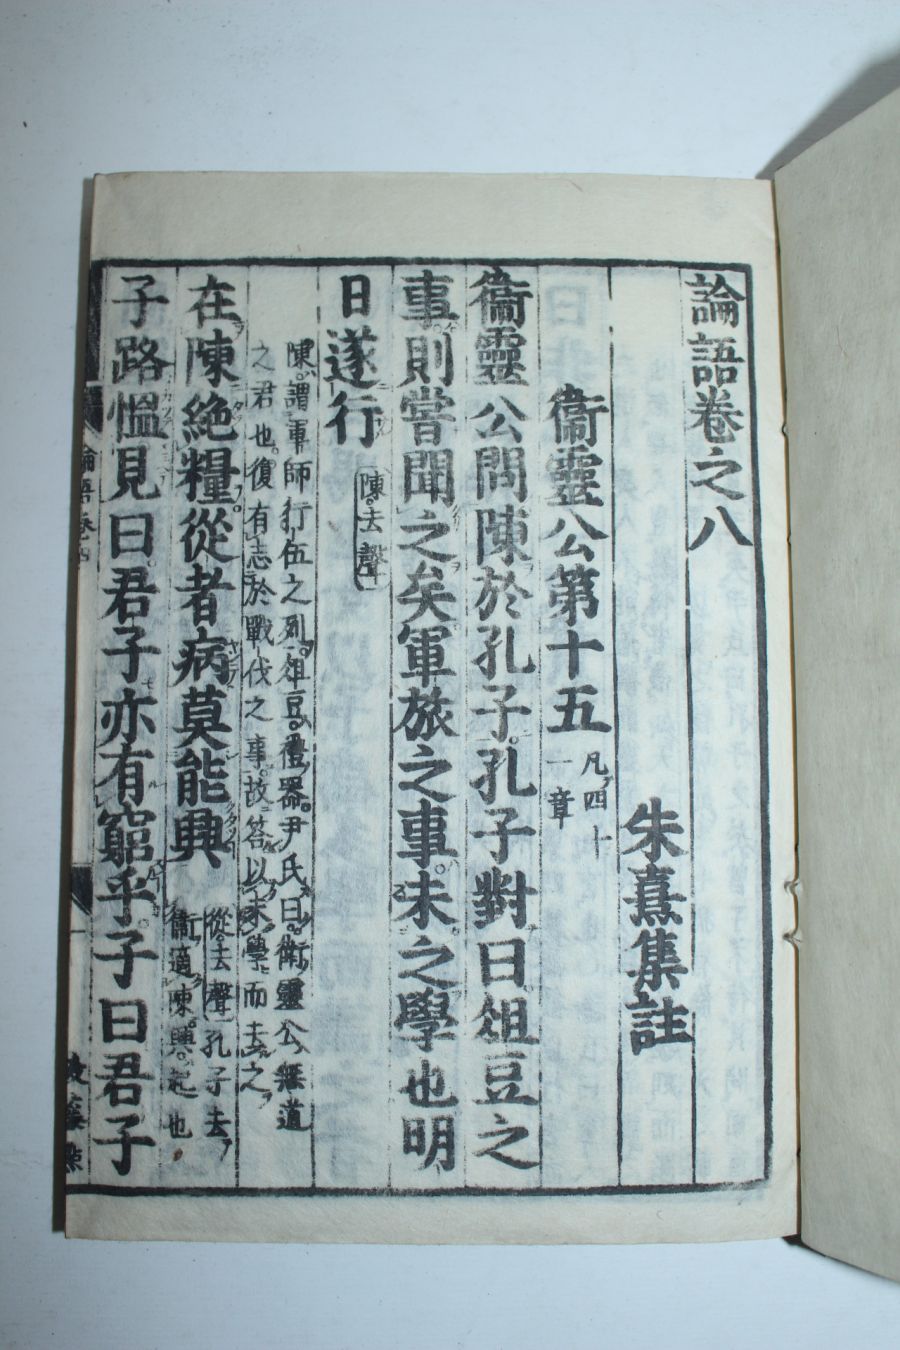 論語卷之八
朱熹集註
衞靈公第十五
凡四十
一章
衞靈公問陳於孔子孔子對曰俎豆之
事則嘗聞之矣軍旅之事未之學也明
日遂行
陳去聲
陳謂軍師行伍之列俎豆禮器尹氏曰衛靈公無道
之君也復有志於戰伐之事故答以未學而去之
在陳絶糧從者病莫能興
從去聲孔子去
衞適陳興起也
子路慍見曰君子亦有窮乎子曰君子